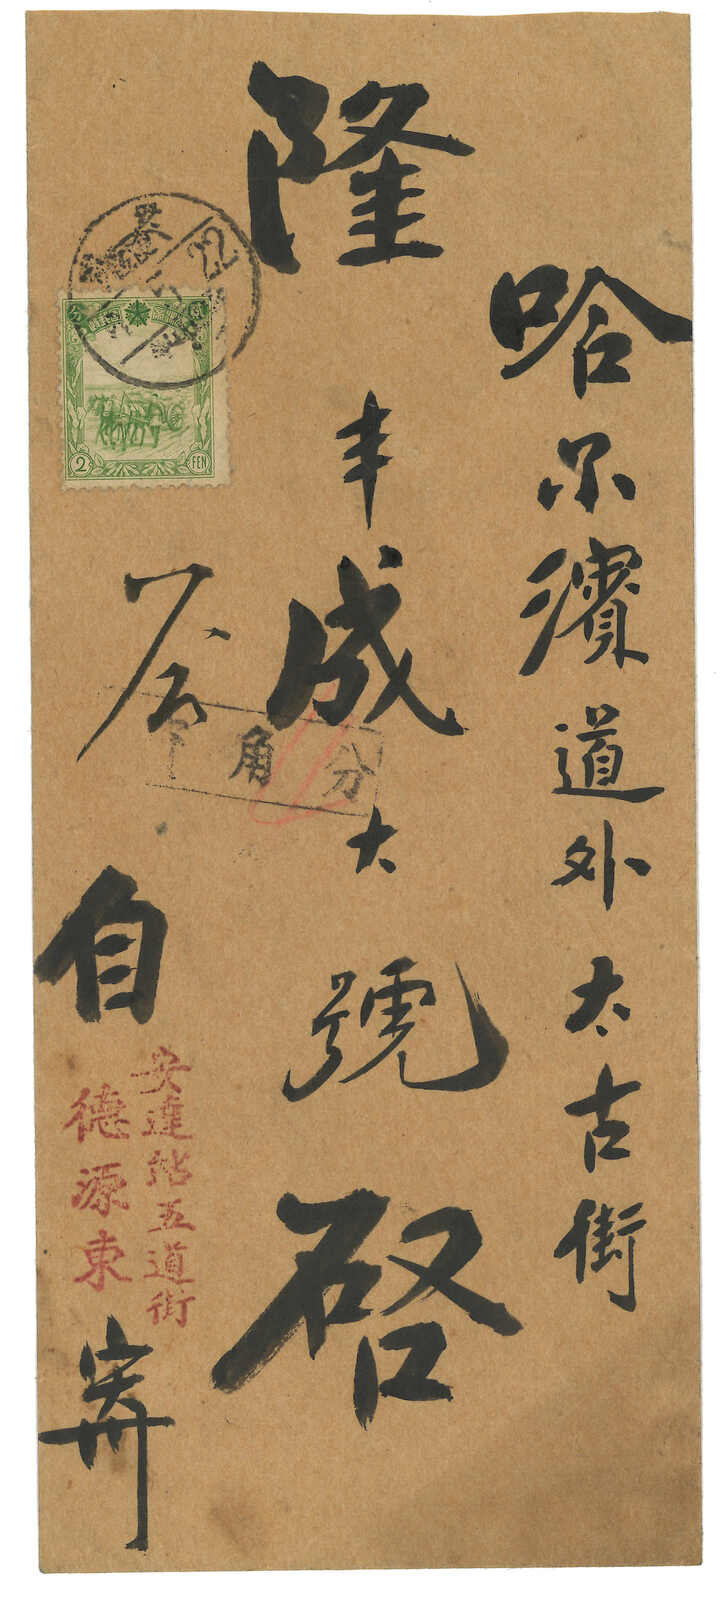 哈尔濱道外太古街
隆丰成大號啓
自
安達站五道街
德源東
寄
角 分
22
2
FEN